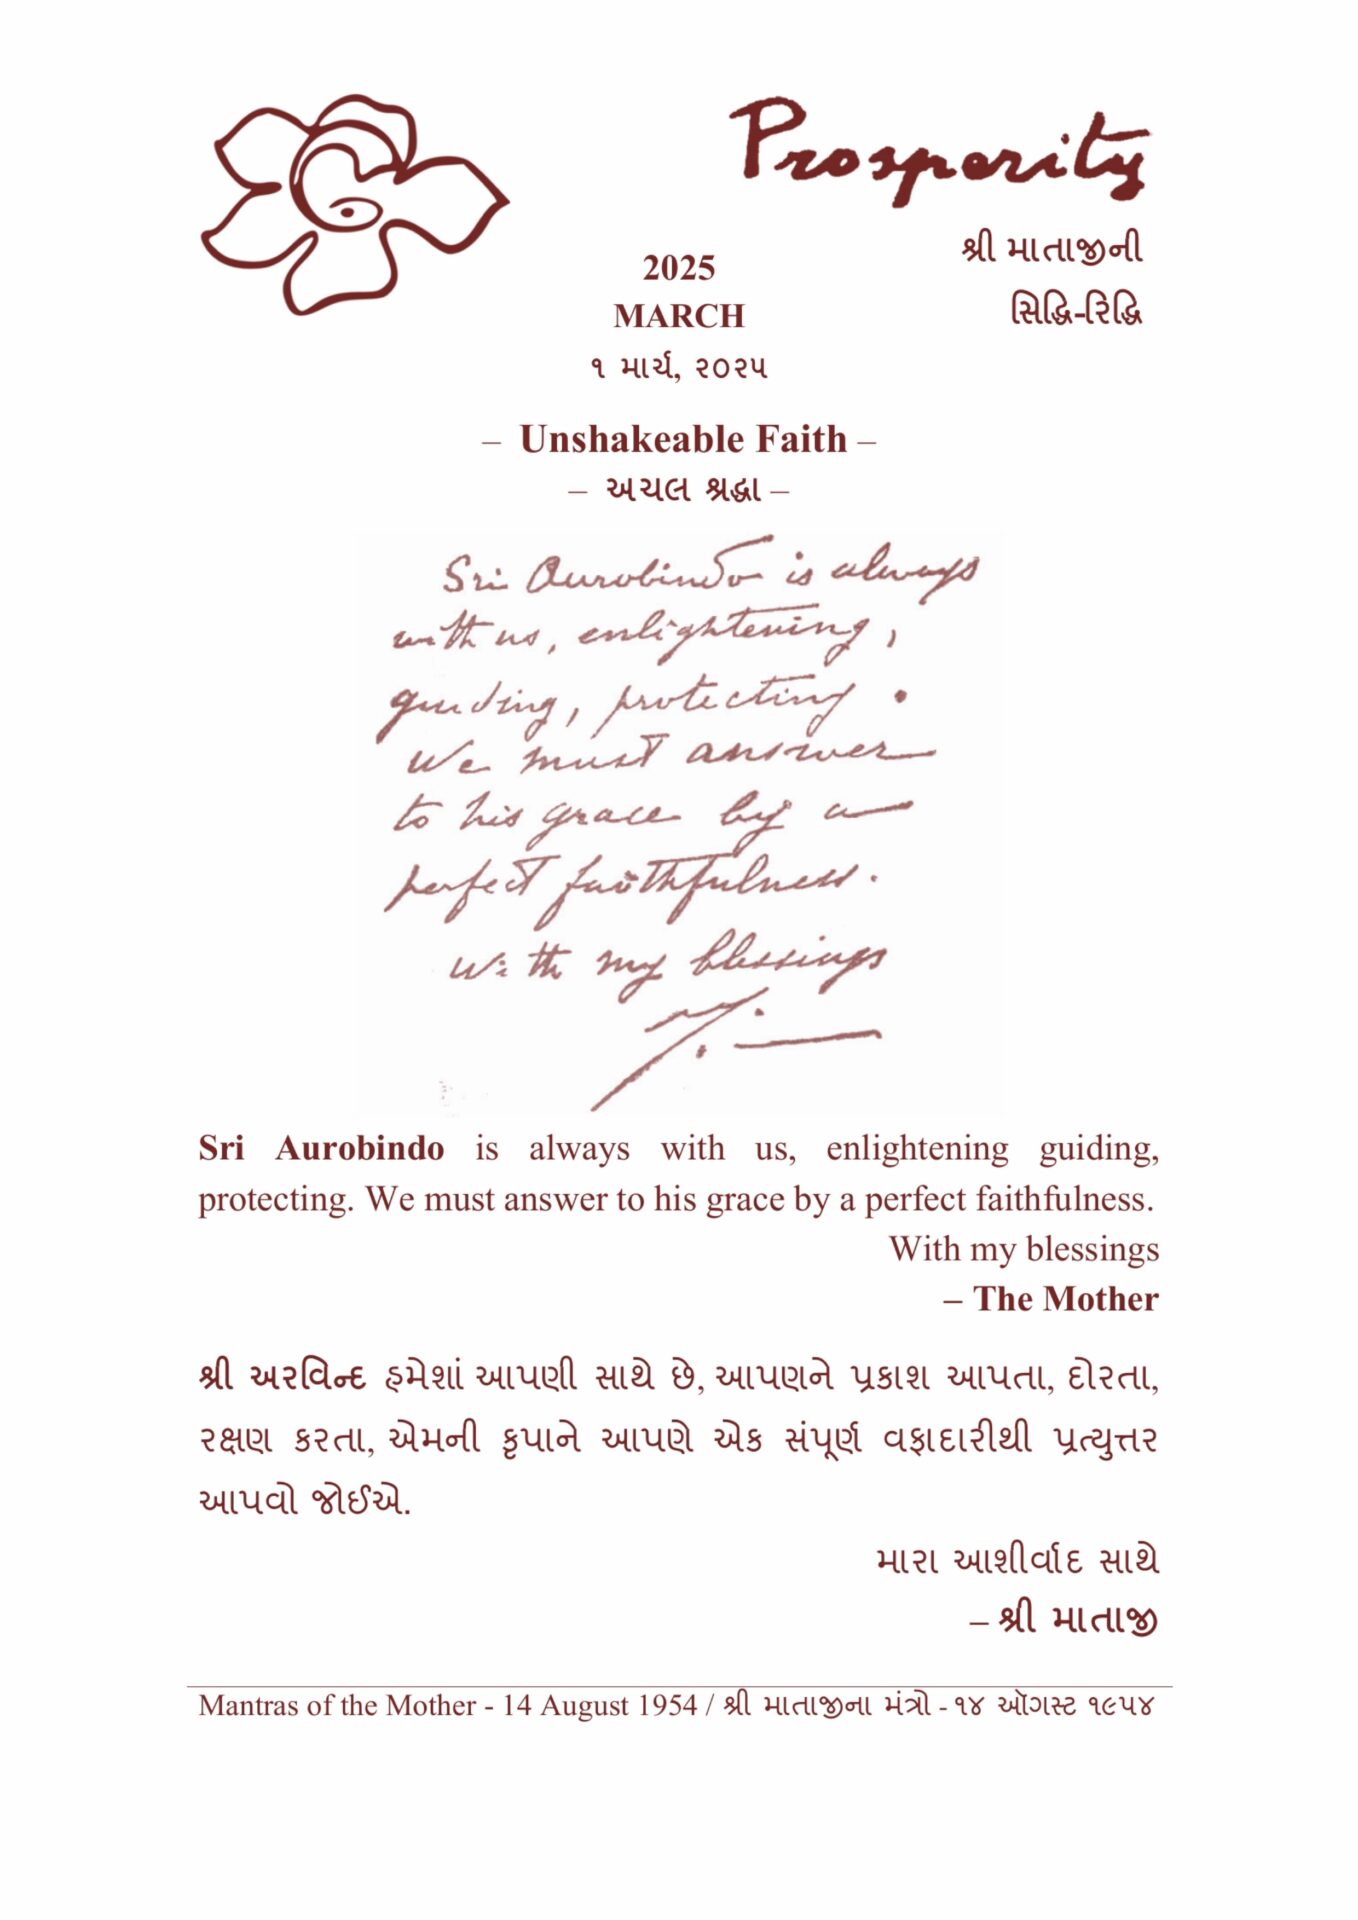 Prosperity
શ્રી માતાજીની
સિદ્ધિ-રિદ્ધિ
2025
MARCH
૧ માર્ચ, ૨૦૨૫
– Unshakeable Faith –
– અચલ શ્રદ્ધા –
Sri Aurobindo is always
with us, enlightening,
guiding, protecting.
We must answer
to his grace by a
perfect faithfulness.
With my blessings
Sri Aurobindo is always with us, enlightening guiding,
protecting. We must answer to his grace by a perfect faithfulness.
With my blessings
– The Mother
શ્રી અરવિન્દ હમેશાં આપણી સાથે છે, આપણને પ્રકાશ આપતા, દોરતા,
રક્ષણ કરતા, એમની કૃપાને આપણે એક સંપૂર્ણ વફાદારીથી પ્રત્યુત્તર
આપવો જોઈએ.
મારા આશીર્વાદ સાથે
– શ્રી માતાજી
Mantras of the Mother - 14 August 1954 / શ્રી માતાજીના મંત્રો - ૧૪ ઑગસ્ટ ૧૯૫૪